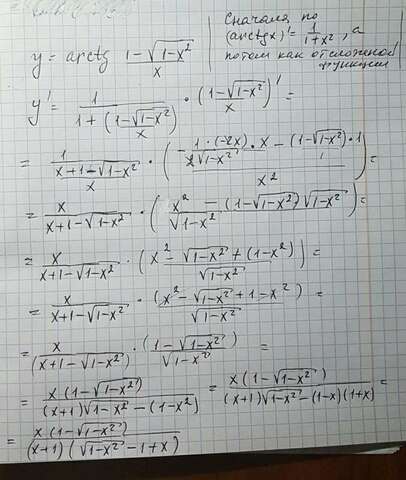 y = arctg (1-√(1-x²))/x
Сначала по
(arctgx)' = 1/(1+x²), а
потом как от сложной
функции
y' = 1/(1 + (1-√(1-x²))/x) · ((1-√(1-x²))/x)' =
= 1/((x+1-√(1-x²))/x) · ((-(1·(-2x))/(2√(1-x²))·x - (1-√(1-x²))·1)/x²) =
= x/(x+1-√(1-x²)) · ((x² - (1-√(1-x²))√(1-x²))/√(1-x²)) =
= x/(x+1-√(1-x²)) · ((x² - √(1-x²) + (1-x²))/√(1-x²)) =
= x/(x+1-√(1-x²)) · ((x² - √(1-x²) + 1 - x²)/√(1-x²)) =
= x/(x+1-√(1-x²)) · ((1-√(1-x²))/√(1-x²)) =
= x(1-√(1-x²))/((x+1)√(1-x²) - (1-x²)) = x(1-√(1-x²))/((x+1)√(1-x²) - (1-x)(1+x)) =
= x(1-√(1-x²))/((x+1)(√(1-x²) - 1+x))